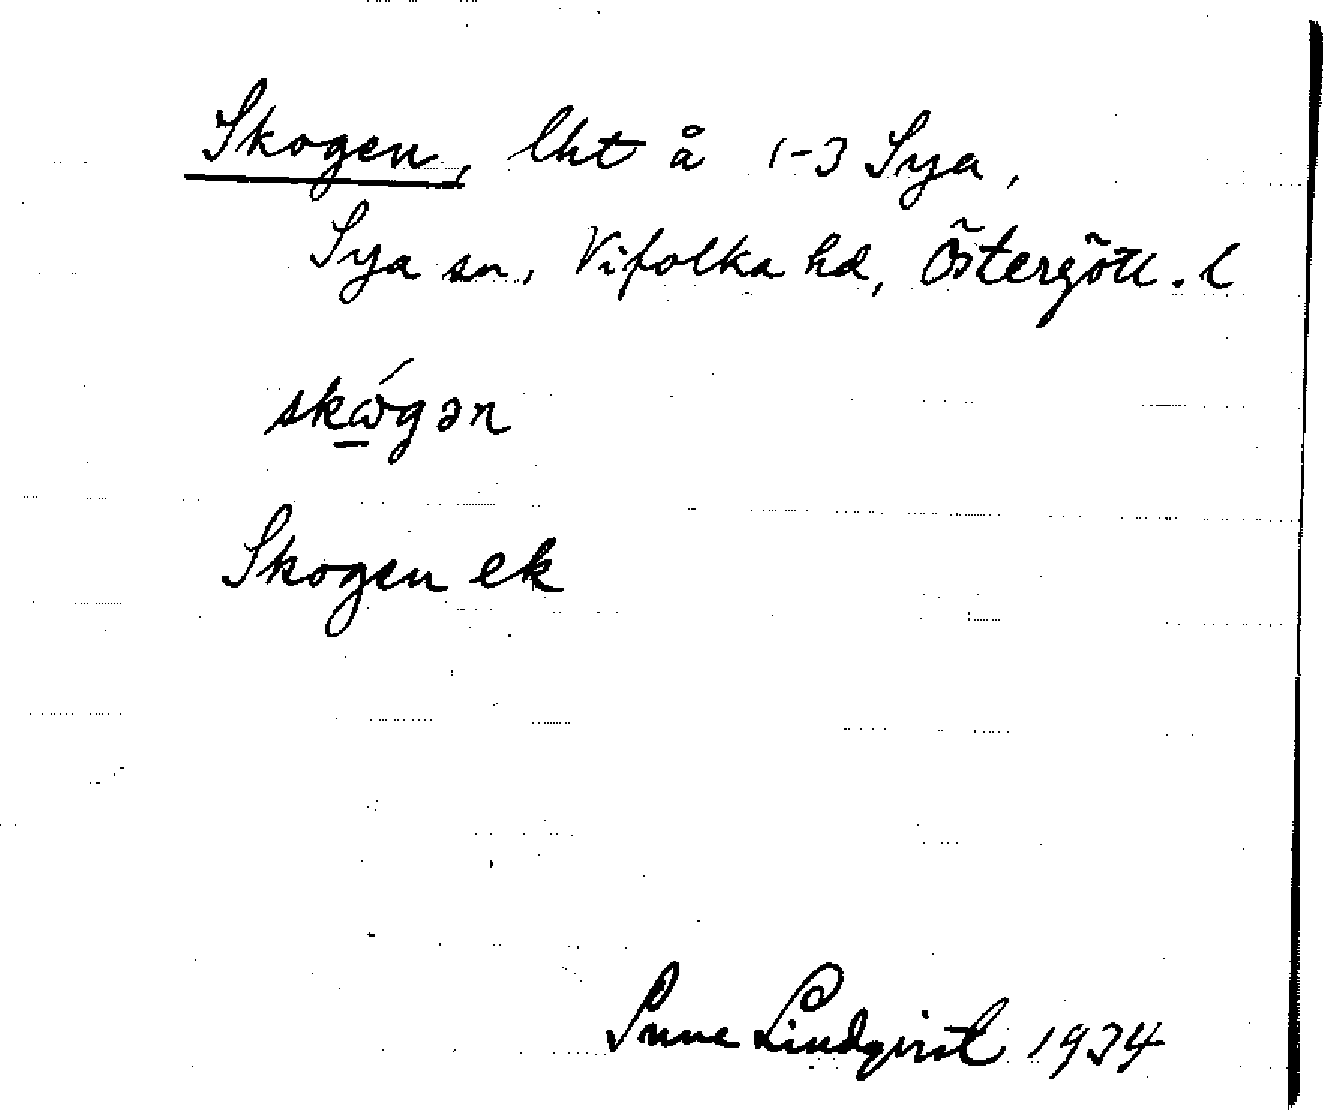 Skogen, lht å 1-3 Sya,
Sya sn., Vifolka hd, Östergötl. l
skώgən
Skogen ek
Sune Lindqvist 1934